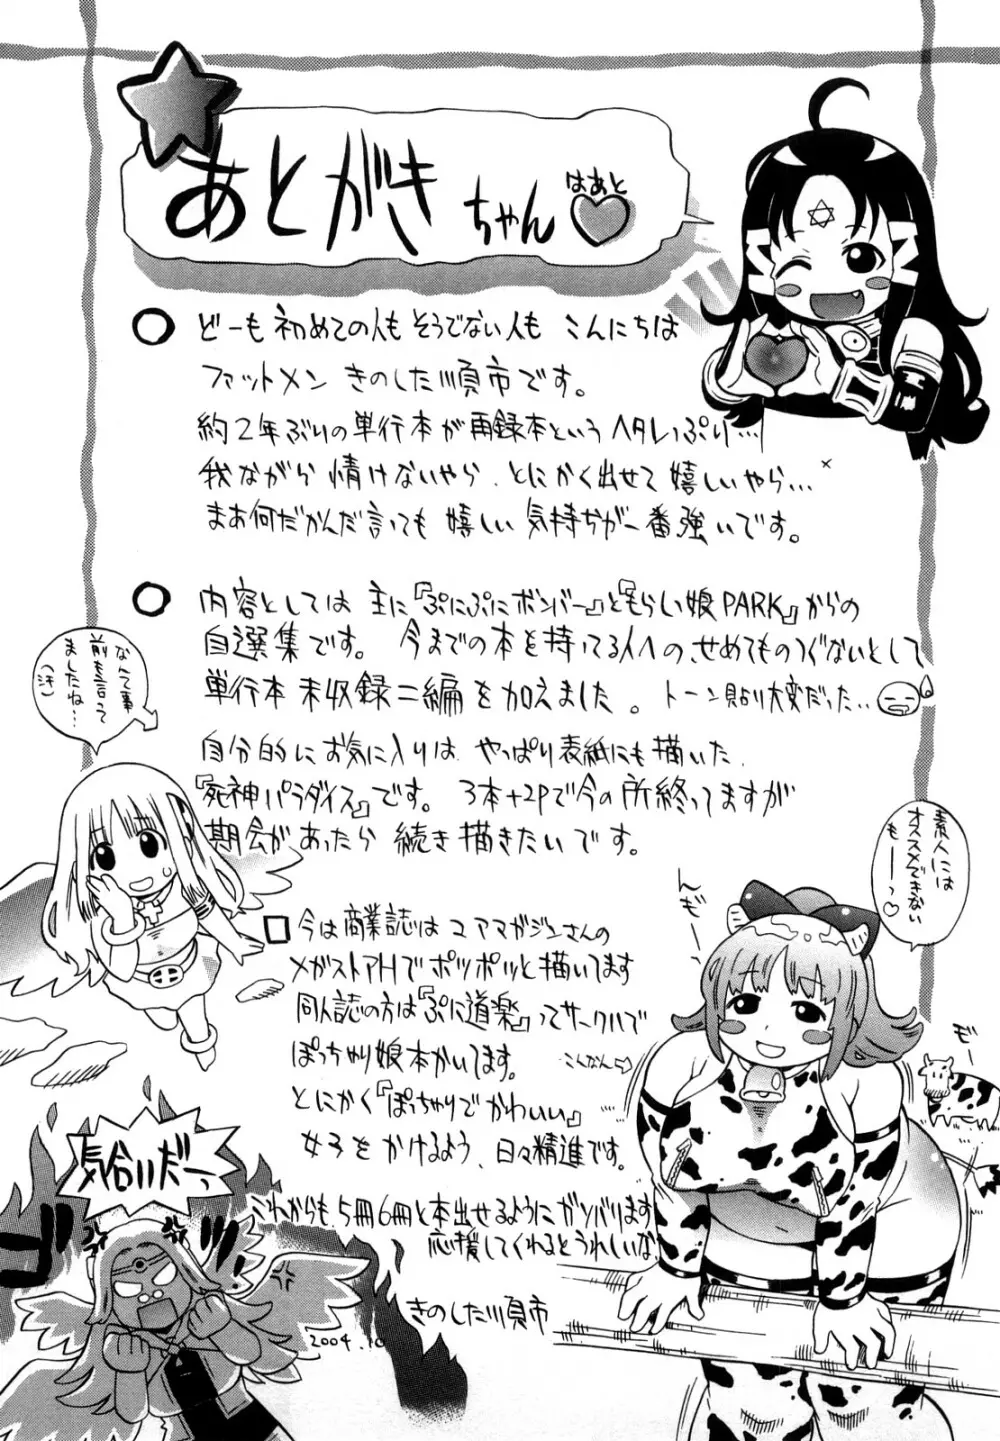 あとがきちゃん♡
はあと
○ どーも初めての人もそうでない人も こんにちは
ファットメン きのした順市です。
約2年ぶりの単行本が再録本というヘタレっぷり…
我ながら情けないやら、とにかく出せて嬉しいやら…
まあ何だかんだ言っても嬉しい気持ちが一番強いです。
○ 内容としては主に『ぷにぷにボンバー』と『もらい娘PARK』からの
自選集です。今までの本を持ってる人への、せめてものつぐないとして
単行本未収録二編を加えました。トーン貼り大変だった…
自分的にお気に入りは やっぱり表紙にも描いた
『死神パラダイス』です。3本+2Pで今の所終ってますが
期会があったら続き描きたいです。
なんて事
前も言って
ましたね…
(汗)
□ 今は商業誌はコアマガジンさんの
メガストアHでポツポツと描いてます
同人誌の方は『ぷに道楽』ってサークルで
ぽっちゃり娘本かいてます。
とにかく『ぽっちゃりでかわいい』
女子をかけるよう、日々精進です。
こんなんら
これからも5冊6冊と本出せるようにガンバります
応援してくれるとうれしいな
きのした順市
2004.10
素人には
オススメできない
もーーっ♡
んぎー
モー
気合いだーっ